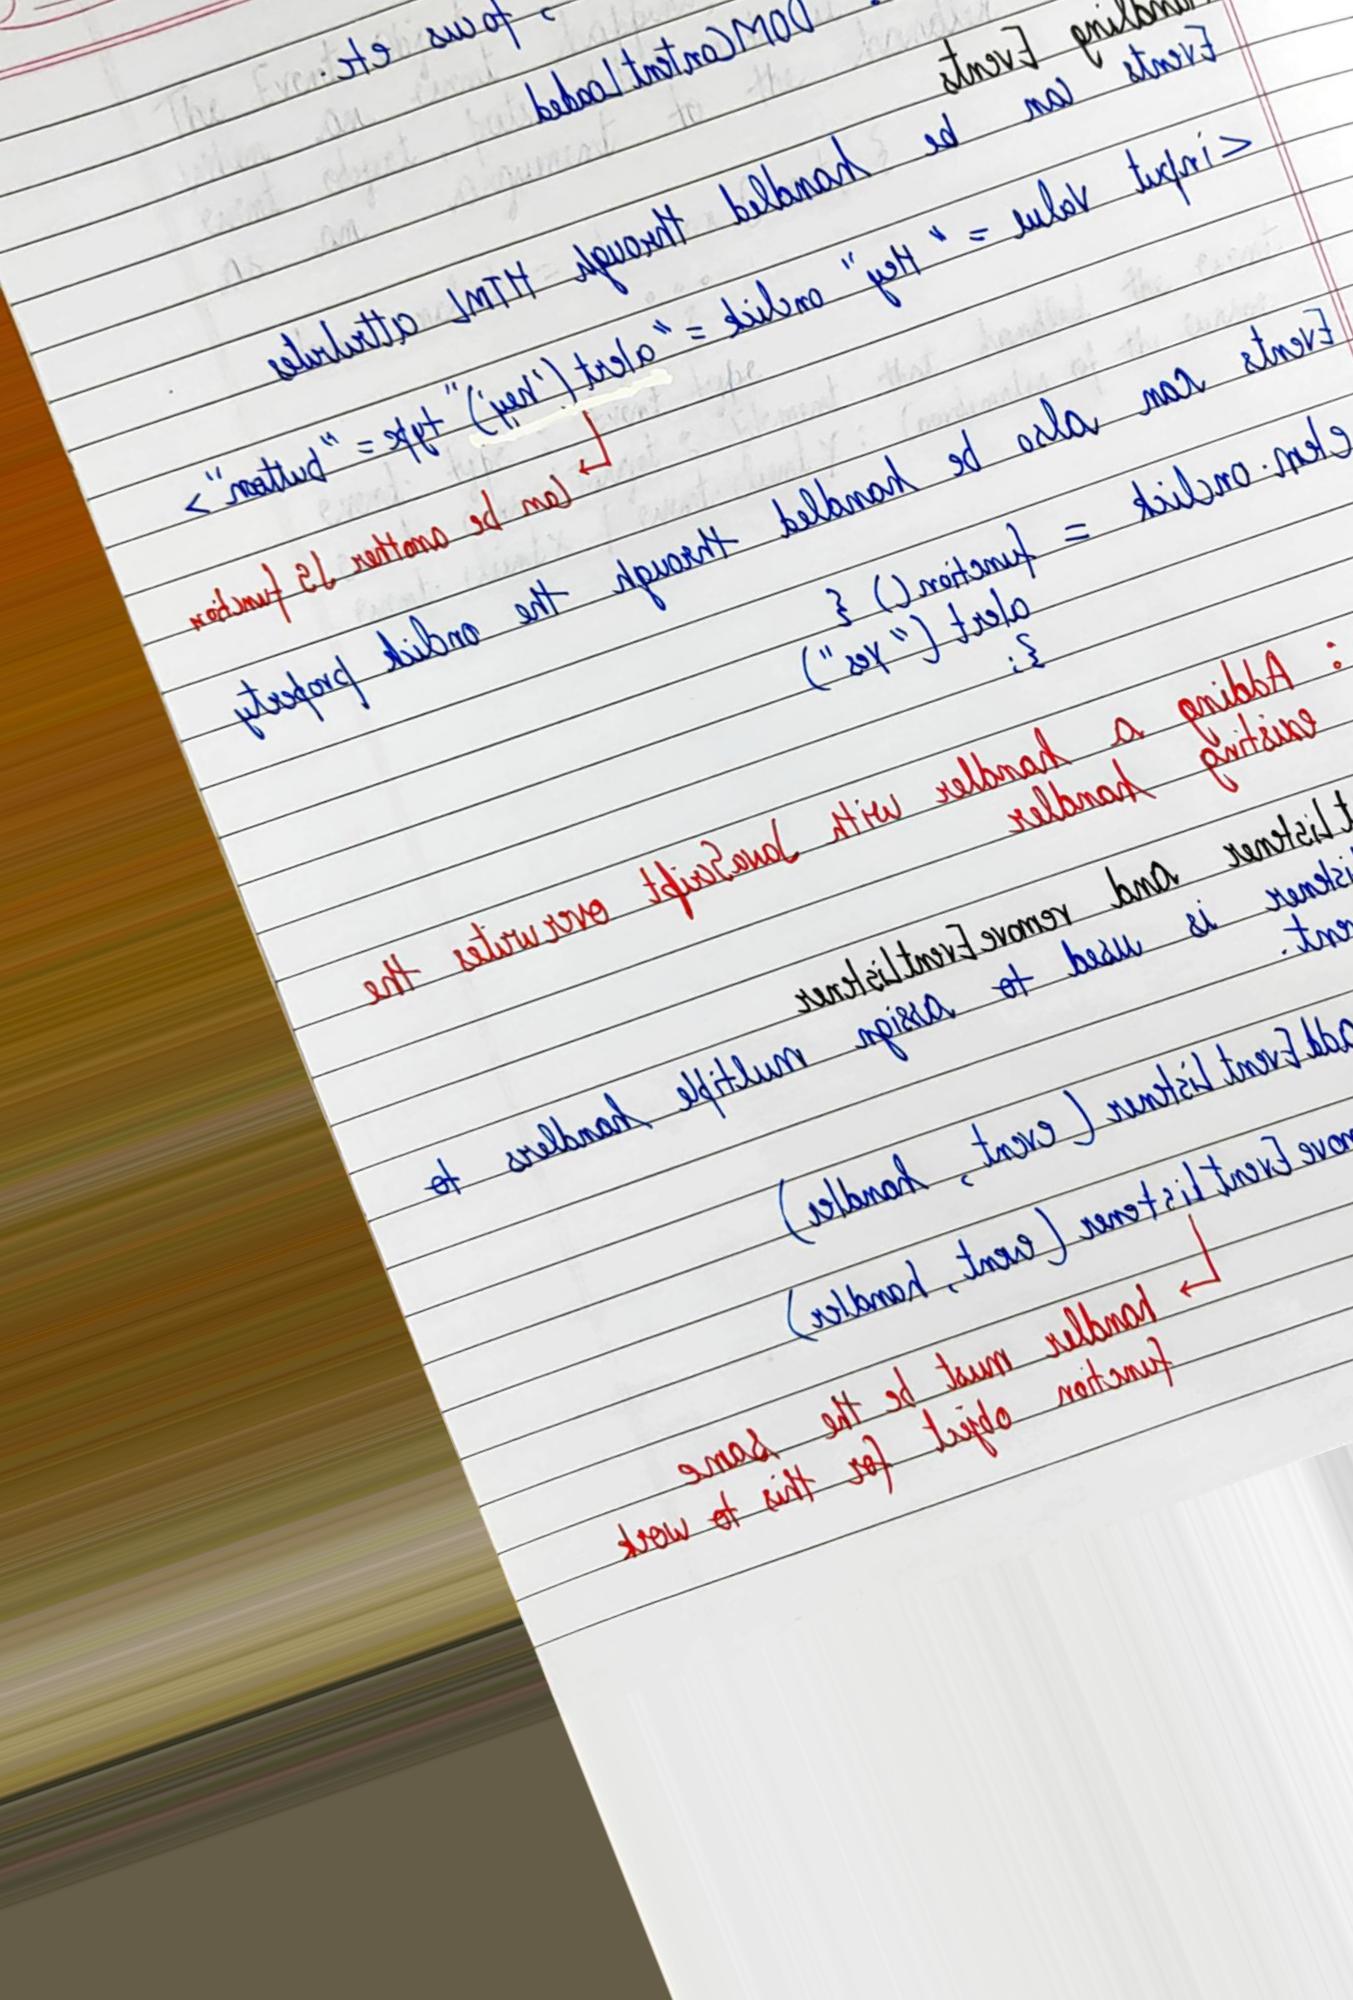 , focus etc.
DOMContentLoaded
Handling Events
Events can be handled through HTML attributes
<input value = "Hey" onclick = "alert('hey')" type = "button">
Can be another JS function
Events can also be handled through the onclick property
elem.onclick = function() {
alert ("Yes")
};
: Adding a handler with JavaScript overwrites the
existing handler
tListener and removeEventListener
istener is used to assign multiple handlers to
ent.
addEventListener (event, handler)
moveEventListener (event, handler)
handler must be the same
function object for this to work